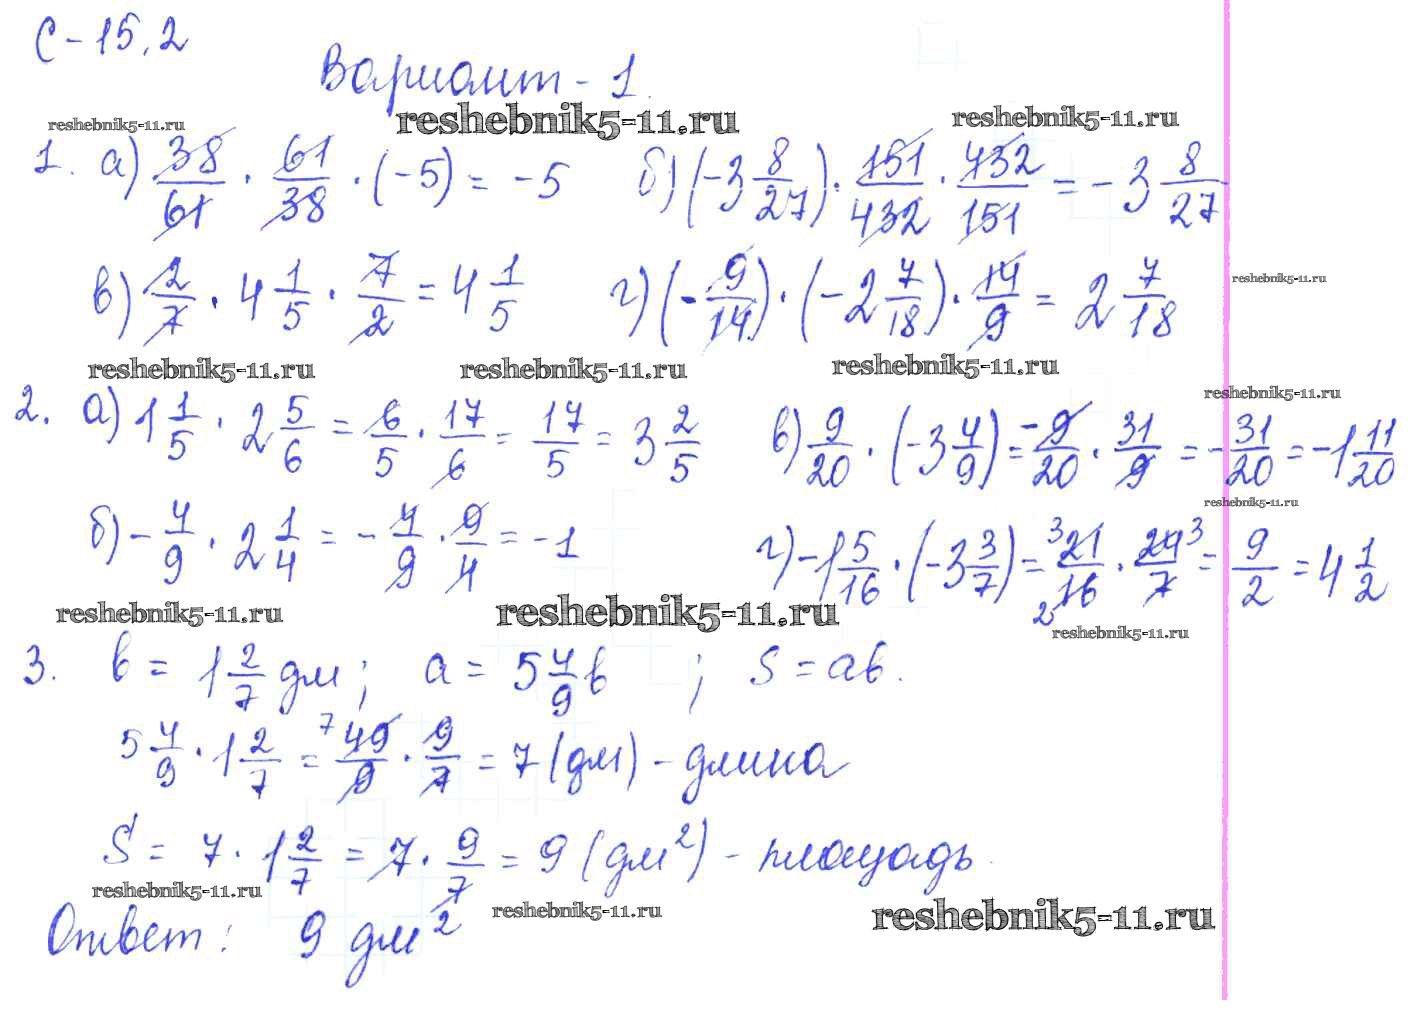 С-15.2
Вариант - 1.
reshebnik5-11.ru reshebnik5-11.ru reshebnik5-11.ru
1. а) 38/61 · 61/38 · (-5) = -5 б) (-3 8/27) · 151/432 · 432/151 = -3 8/27
в) 2/7 · 4 1/5 · 7/2 = 4 1/5 г) (-9/14) · (-2 7/18) · 14/9 = 2 7/18
reshebnik5-11.ru
reshebnik5-11.ru reshebnik5-11.ru reshebnik5-11.ru
reshebnik5-11.ru
2. а) 1 1/5 · 2 5/6 = 6/5 · 17/6 = 17/5 = 3 2/5 в) 9/20 · (-3 4/9) = -9/20 · 31/9 = -31/20 = -1 11/20
reshebnik5-11.ru
б) -4/9 · 2 1/4 = -4/9 · 9/4 = -1 г) -1 5/16 · (-3 3/7) = 3 21/16 2 · 24/7 3 = 9/2 = 4 1/2
reshebnik5-11.ru reshebnik5-11.ru reshebnik5-11.ru
3. b = 1 2/7 дм; a = 5 4/9 b ; S = ab.
5 4/9 · 1 2/7 = 7 49/9 · 9/7 = 7 (дм) - длина
S = 7 · 1 2/7 = 7 · 9/7 = 9 (дм²) - площадь.
reshebnik5-11.ru reshebnik5-11.ru reshebnik5-11.ru
Ответ: 9 дм²